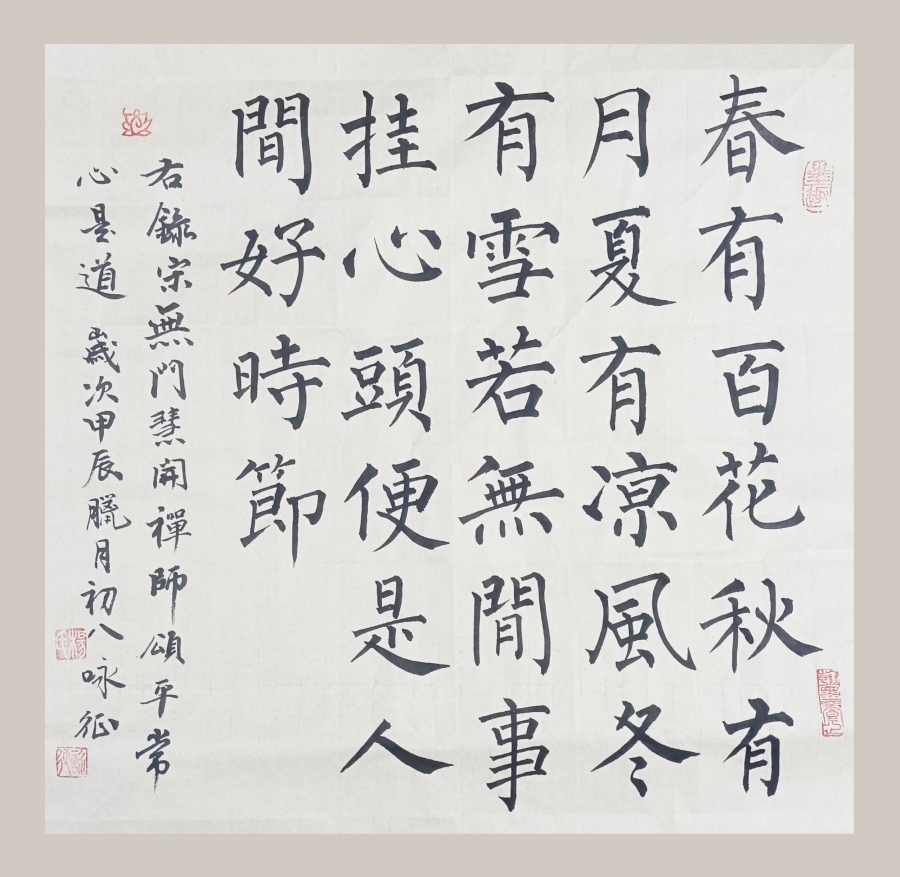 春有百花秋有
月夏有凉風冬
有雪若無閒事
挂心頭便是人
間好時節
右錄宋無門慧開禪師頌平常
心是道 歲次甲辰臘月初八咏征